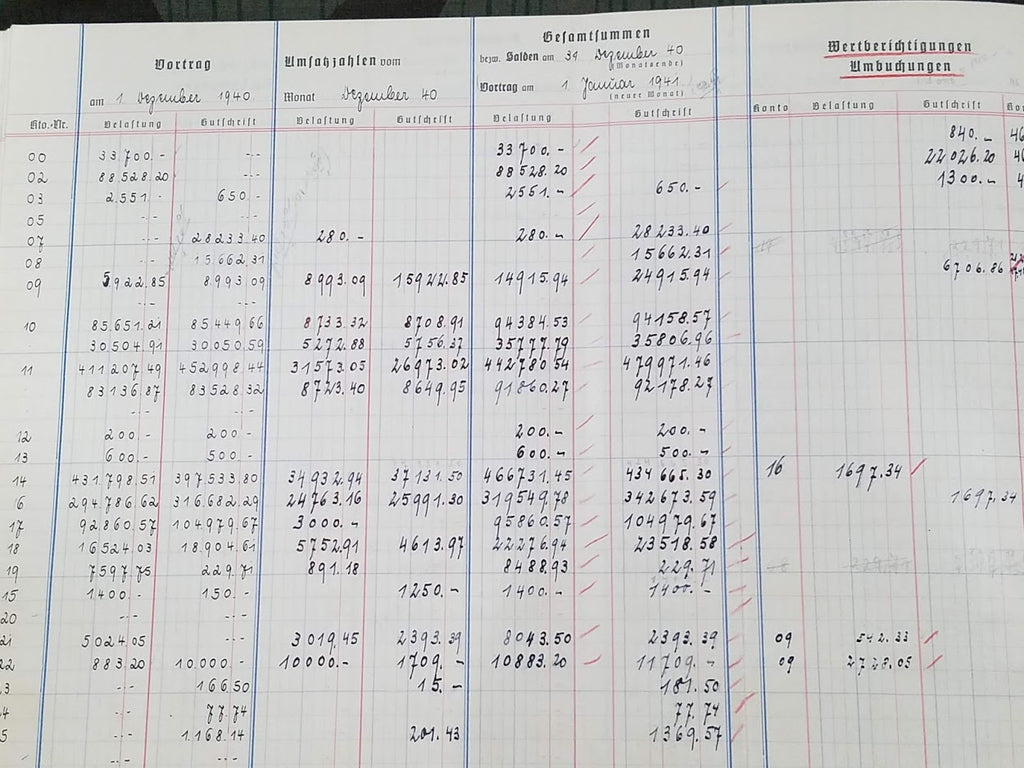 Gesamtsummen
Vortrag Umsatzzahlen vom bezw. Salden am 31. Dezember 40 Wertberichtigungen
(Monatsende) Umbuchungen
am 1. Dezember 1940. Monat Dezember 40 Vortrag am 1. Januar 1941.
(neuer Monat)
Kto.-Nr. Belastung Gutschrift Belastung Gutschrift Belastung Gutschrift Konto Belastung Gutschrift
00 33700.- -.- 33700.- 840.-
02 88528.20 88528.20 22026.20
03 2.551.- 650.- 2551.- 650.- 1300.-
05 -.-
07 -.- 28233.40 280.- 280.- 28233.40
08 15.662.31 15662.31
09 5922.85 8993.09 8993.09 15922.85 14915.94 24915.94 6706.86
-.-
10 85.651.21 85.449.66 8733.32 8708.91 94384.53 94158.57
30504.91 30050.59 5272.88 5756.37 35777.79 35806.96
11 411207.49 452998.44 31573.05 26973.02 442780.54 479971.46
83136.87 83528.32 8723.40 8649.95 91860.27 92178.27
-.-
12 200.- 200.- 200.- 200.-
13 600.- 500.- 600.- 500.-
14 431.798.51 397533.80 34932.94 37131.50 466731.45 434665.30 16 1697.34
16 294.786.62 316.682.29 24763.16 25991.30 319549.78 342673.59 1697.34
17 92860.57 104979.67 3000.- 95860.57 104979.67
18 16524.03 18.904.61 5752.91 4613.97 22276.94 23518.58
19 7597.75 229.71 891.18 8488.93 229.71
15 1.400.- 150.- 1250.- 1400.- 1400.-
20 -.-
21 5024.05 -.- 3019.45 2393.39 8043.50 2393.39 09 542.33
22 883.20 10.000.- 10000.- 1709.- 10883.20 11709.- 09 2728.05
3 -.- 166.50 15.- 181.50
4 -.- 77.74 77.74
5 -.- 1.168.14 201.43 1369.57
-.- -.-